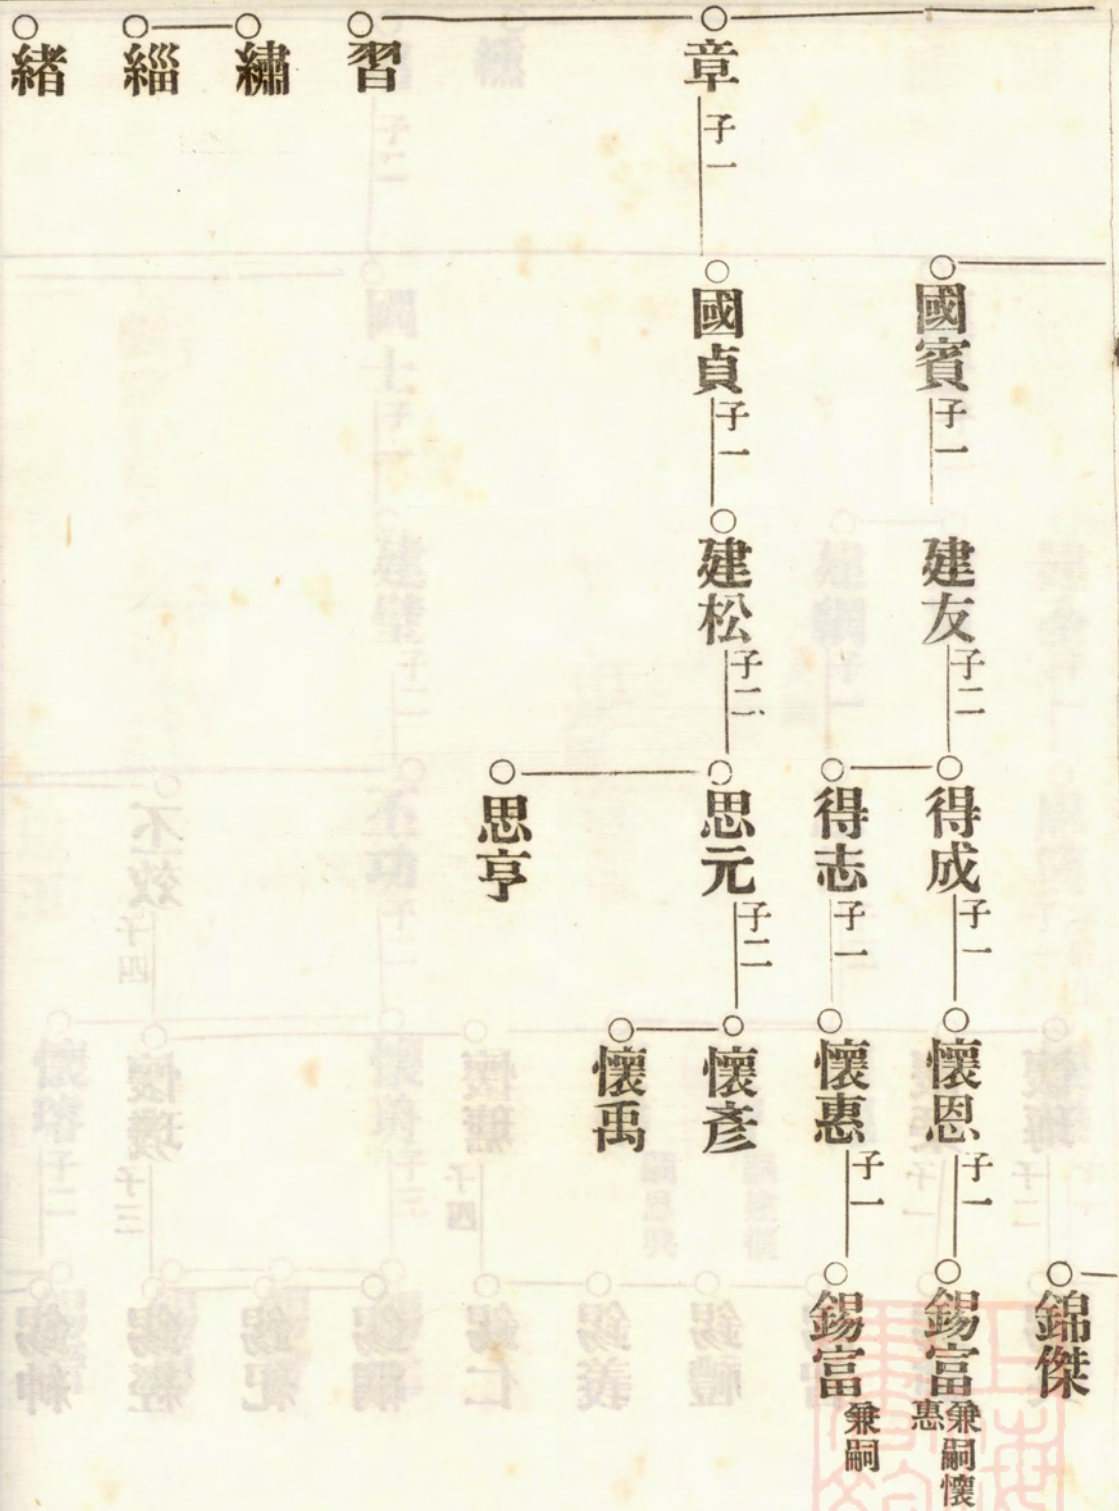 章子一
習
繡
緇
緒
國賓子一
國貞子一
建友子二
建松子二
得成子一
得志子一
思元子二
思亨
懷恩子一
懷惠子一
懷彥
懷禹
錦傑
錫富兼嗣懷惠
錫富兼嗣